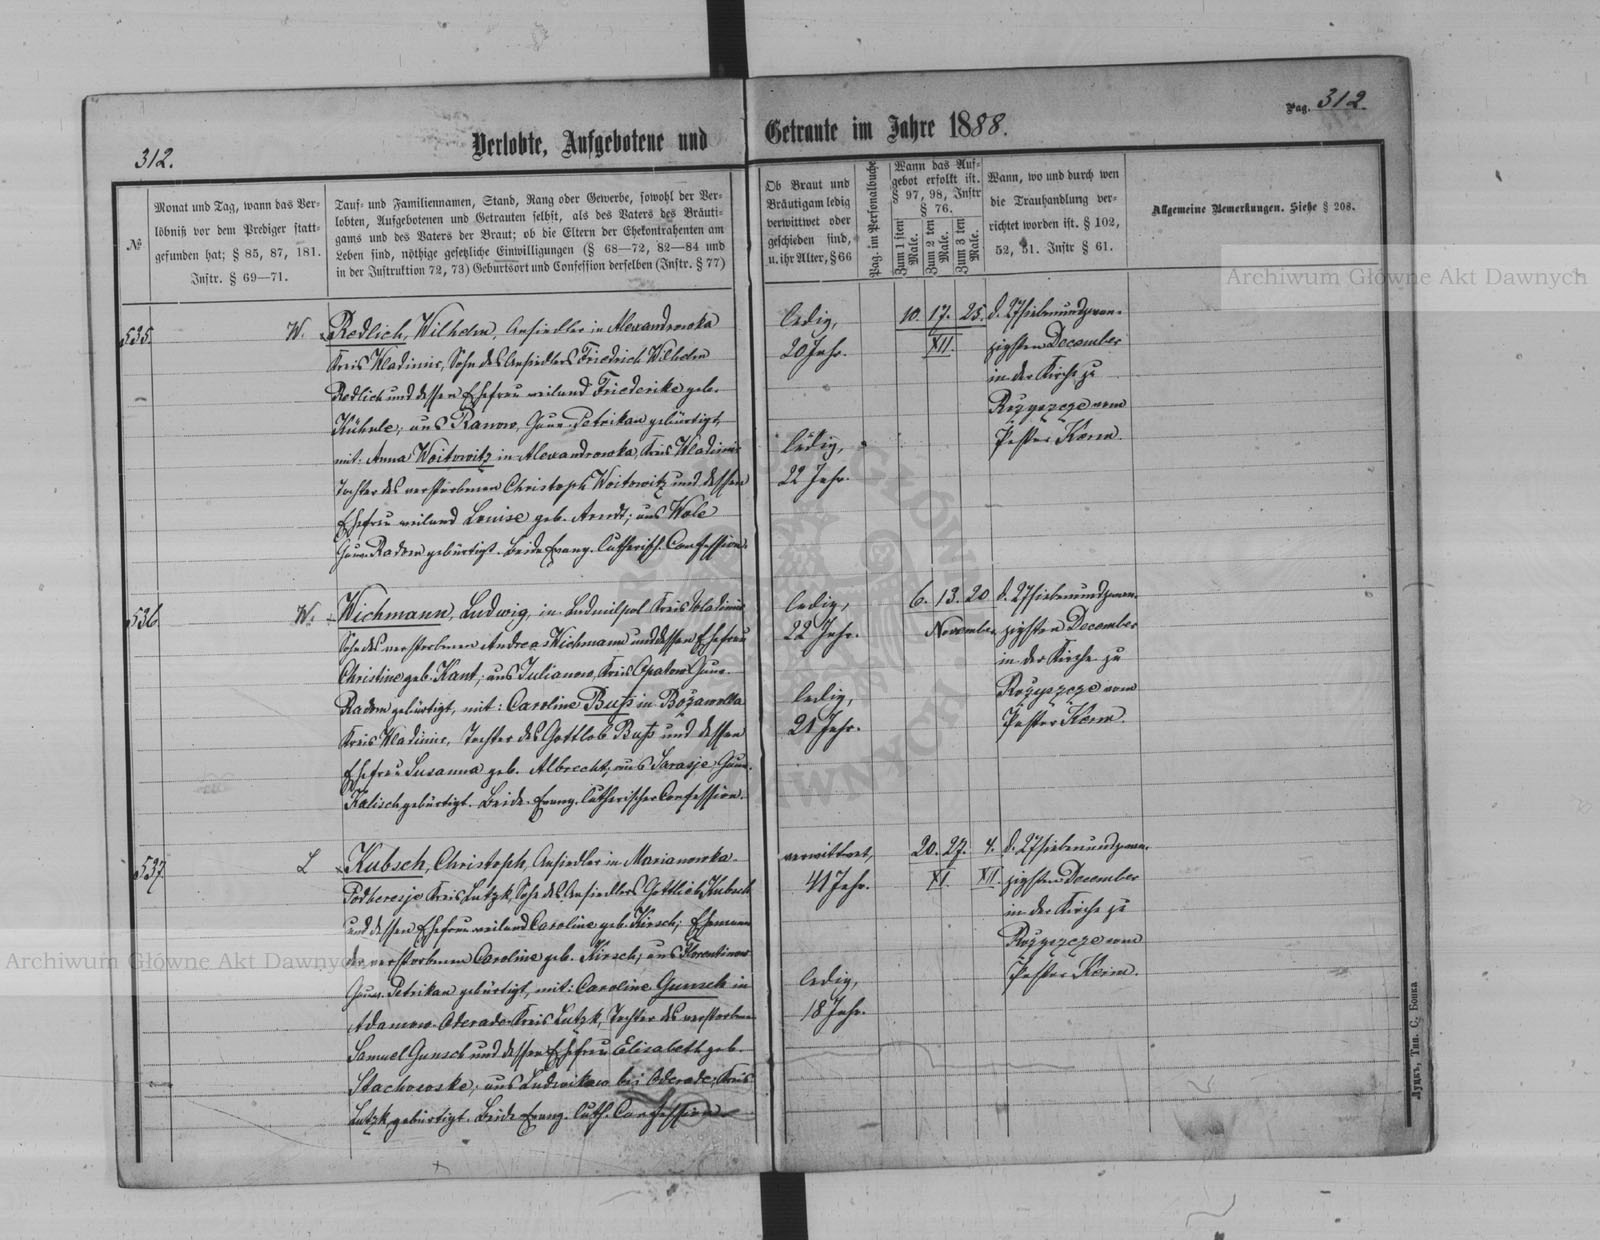 Pag. 312.
312.
Verlobte, Aufgebotene und Getraute im Jahre 1888.
№
Monat und Tag, wann das Ver-
löbniß vor dem Prediger statt-
gefunden hat; § 85, 87, 181.
Instr. § 69—71.
Tauf- und Familiennamen, Stand, Rang oder Gewerbe, sowohl der Ver-
lobten, Aufgebotenen und Getrauten selbst, als des Vaters des Bräuti-
gams und des Vaters der Braut; ob die Eltern der Ehekontrahenten am
Leben sind, nöthige gesetzliche Einwilligungen (§ 68—72, 82—84 und
in der Instruktion 72, 73) Geburtsort und Confession derselben (Instr. § 77)
Ob Braut und
Bräutigam ledig
verwittwet oder
geschieden sind,
u. ihr Alter, § 66
Pag. im Personalbuche
Wann das Auf-
gebot erfolgt ist.
§ 97, 98, Instr
§ 76.
Zum 1 sten
Male.
Zum 2 ten
Male.
Zum 3 ten
Male.
Wann, wo und durch wen
die Trauhandlung ver-
richtet worden ist. § 102,
52, 51. Instr § 61.
Allgemeine Bemerkungen. Siehe § 208.
535.
W.
Redlich, Wilhelm, Ansiedler in Alexandrowka
Kreis Wladimir, Sohn des Ansiedlers Friedrich Wilhelm
Redlich und dessen Ehefrau weiland Friederike geb.
Kühnle; aus Ranow, Gouv. Petrikau gebürtigt,
mit: Anna Woitowitz in Alexandrowka, Kreis Wladimir
Tochter des verstorbenen Christoph Woitowitz und dessen
Ehefrau weiland Louise geb. Arndt; aus Wole
Gouv. Radom gebürtigt. Beide Evang. Lutherisch. Confession.
ledig,
20 Jahr.
ledig,
22 Jahr.
10. 17. 25.
XII.
d. 27 siebenundzwan-
zigsten December
in der Kirche zu
Rożyszcze vom
Pastor Kerm.
536
W.
Wichmann, Ludwig, in Ludmilpol Kreis Wladimir
Sohn des verstorbenen Andreas Wichmann und dessen Ehefrau
Christine geb. Kant; aus Julianow, Kreis Opatow Gouv.
Radom gebürtigt, mit: Caroline Buß in Bożawolka
Kreis Wladimir, Tochter des Gottlob Buß und dessen
Ehefrau Susanna geb. Albrecht; aus Sarasje Gouv.
Kalisch gebürtigt. Beide Evang. Lutherischer Confession.
ledig,
22 Jahr.
ledig,
21 Jahr.
6. 13. 20
November
d. 27 siebenundzwan-
zigsten December
in der Kirche zu
Rożyszcze vom
Pastor Kerm.
537.
L
Kubsch, Christoph, Ansiedler in Marianowka-
Podberesje Kreis Lutzk, Sohn des Ansiedlers Gottlieb Kubsch
und dessen Ehefrau weiland Caroline geb. Kirsch; Ehemann
der verstorbenen Caroline geb. Kirsch; aus Florentinow
Gouv. Petrikau gebürtigt, mit: Caroline Gunsch in
Adamow-Oderade Kreis Lutzk, Tochter des verstorbenen
Samuel Gunsch und dessen Ehefrau Elisabeth geb.
Stachowske; aus Ludwikow bei Oderade, Kreis
Lutzk gebürtigt. Beide Evang. Luth. Confession
verwittwet,
41 Jahr.
ledig,
18 Jahr.
20. 27. 4.
XI. XII.
d. 27 siebenundzwan-
zigsten December
in der Kirche zu
Rożyszcze vom
Pastor Kerm.
Луцкъ, Тип. С. Бонка
Archiwum Główne Akt Dawnych
Archiwum Główne Akt Dawnych